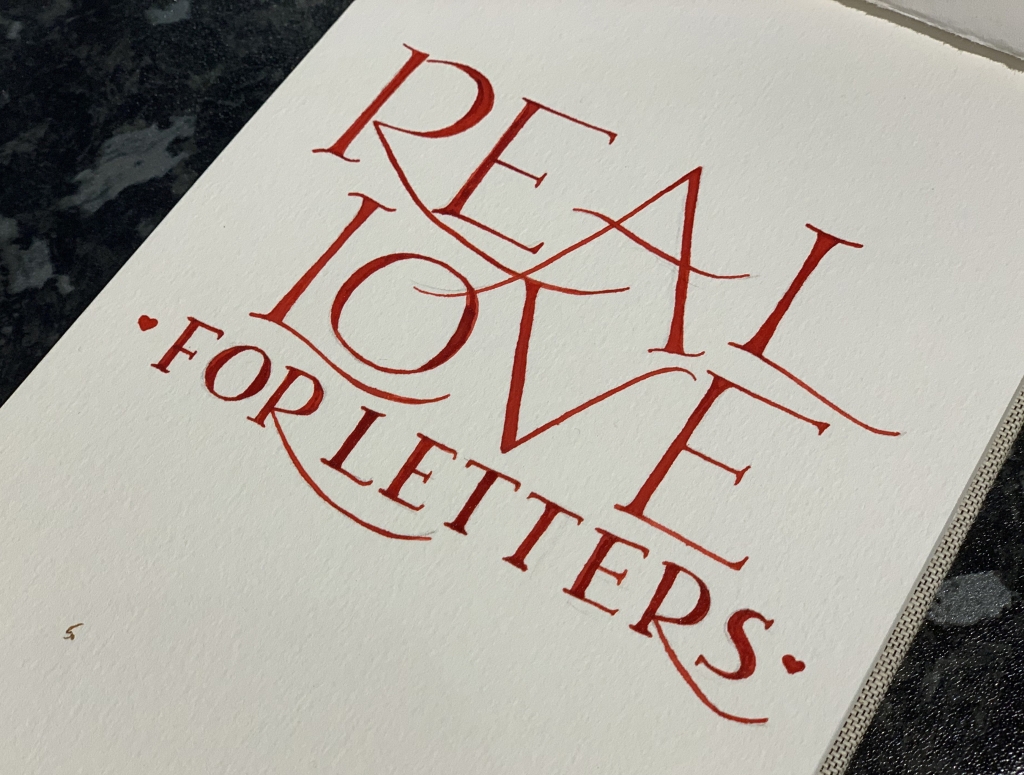 REAL
LOVE
♥FOR LETTERS♥
5